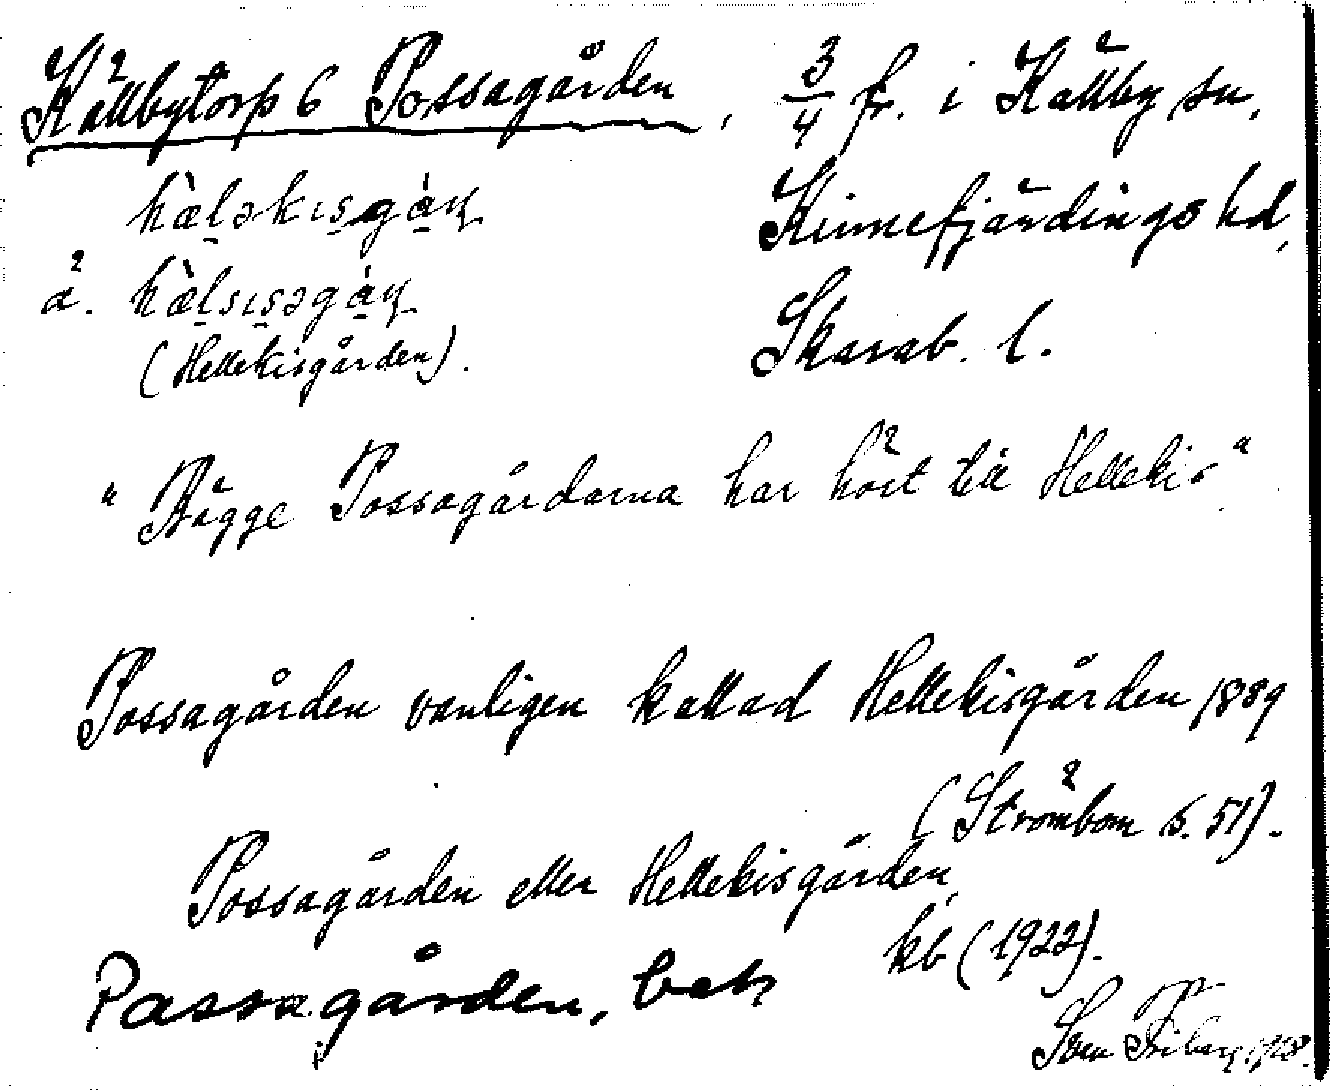 Källbytorp 6 Possagården, 3/4 fr. i Källby sn,
hæ̀ləkısgáɳ Kinnefjärdings hd,
ä. hæ̀lsısəgáɳ Skarab. l.
(Hellekisgården).
"Bägge Possagårdarna har hört till Hellekis"
Possagården vanligen kallad Hellekisgården 1889
(Strömbom s. 51).
Possagården eller Hellekisgården,
kb (1922).
Passagården, bet
Sven Friberg 1928.